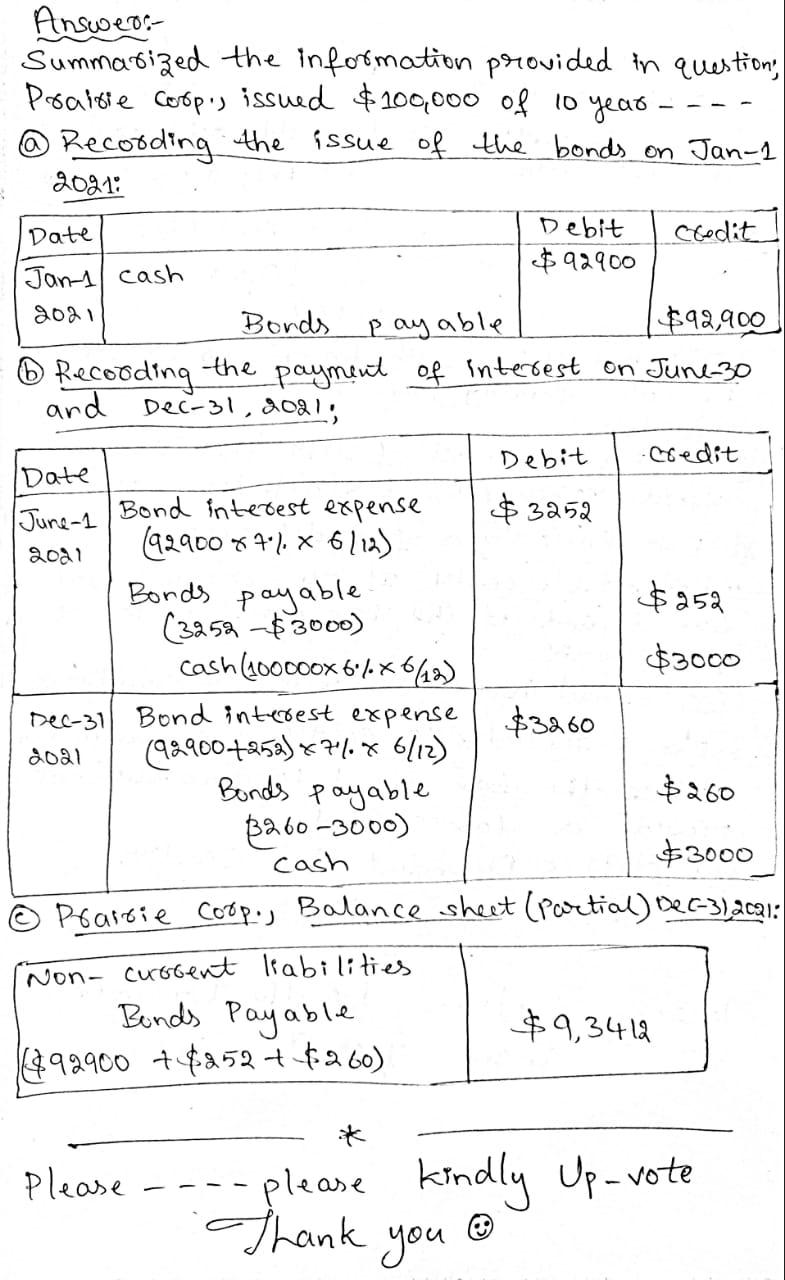 Answer:-
Summarized the information provided in question;
Prairie Corp., issued $100,000 of 10 year - - - -
(a) Recording the issue of the bonds on Jan-1
2021:
Date Debit Credit
Jan-1 cash $92900
2021 Bonds payable $92,900
(b) Recording the payment of interest on June-30
and Dec-31, 2021;
Date Debit credit
June-1 Bond interest expense $3252
2021 (92900 x 7% x 6/12)
Bonds payable $252
(3252 - $3000)
cash (100000x6%x6/12) $3000
Dec-31 Bond interest expense $3260
2021 (92900+252) x 7% x 6/12)
Bonds payable $260
(3260-3000)
cash $3000
(c) Prairie Corp., Balance sheet (Partial) Dec-31,2021:
Non- current liabilities
Bonds Payable $9,3412
($92900 + $252 + $260)
*
Please - - - - please kindly Up-vote
Thank you ☺